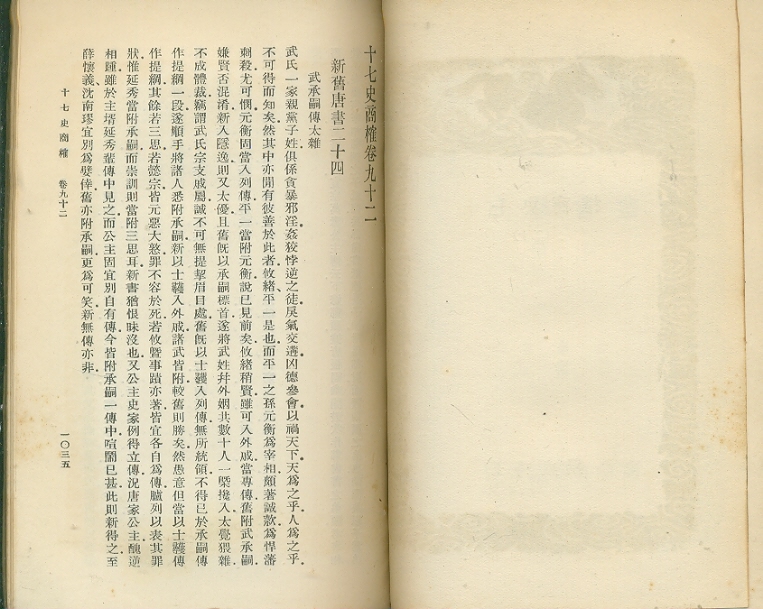 十七史商榷卷九十二
新舊唐書二十四
武承嗣傳太雜
武氏一家親黨子姓俱係貪暴邪淫姦狡悖逆之徒戾氣交遘凶德參會以禍天下天爲之乎人爲之乎
不可得而知矣然其中亦閒有彼善於此者攸緒平一是也而平一之孫元衡爲宰相頗著誠款爲悍藩
刺殺尤可憫元衡固當入列傳平一當附元衡說已見前矣攸緒稍賢雖可入外戚當專傳舊附武承嗣
嫌賢否混淆新入隱逸則又太優且舊既以承嗣標首遂將武姓幷外姻共數十人一槩攙入太覺猥雜
不成體裁竊謂武氏宗支戚屬誠不可無提挈眉目處舊既以士彠入列傳無所統領不得已於承嗣傳
作提綱一段遂順手將諸人悉附承嗣新以士彠入外戚諸武皆附較舊則勝矣然愚意但當以士彠傳
作提綱其餘若三思若懿宗皆元惡大憝罪不容於死若攸暨事蹟亦著皆宜各自爲傳臚列以表其罪
狀惟延秀當附承嗣而崇訓則當附三思耳新書猶恨昧沒也又公主史家例得立傳況唐家公主醜逆
相踵雖於主壻延秀輩傳中見之而公主固宜別自有傳今皆附承嗣一傳中喧鬧已甚此則新得之至
薛懷義沈南璆宜別爲嬖倖舊亦附承嗣更爲可笑新無傳亦非
十七史商榷 卷九十二
一〇三五